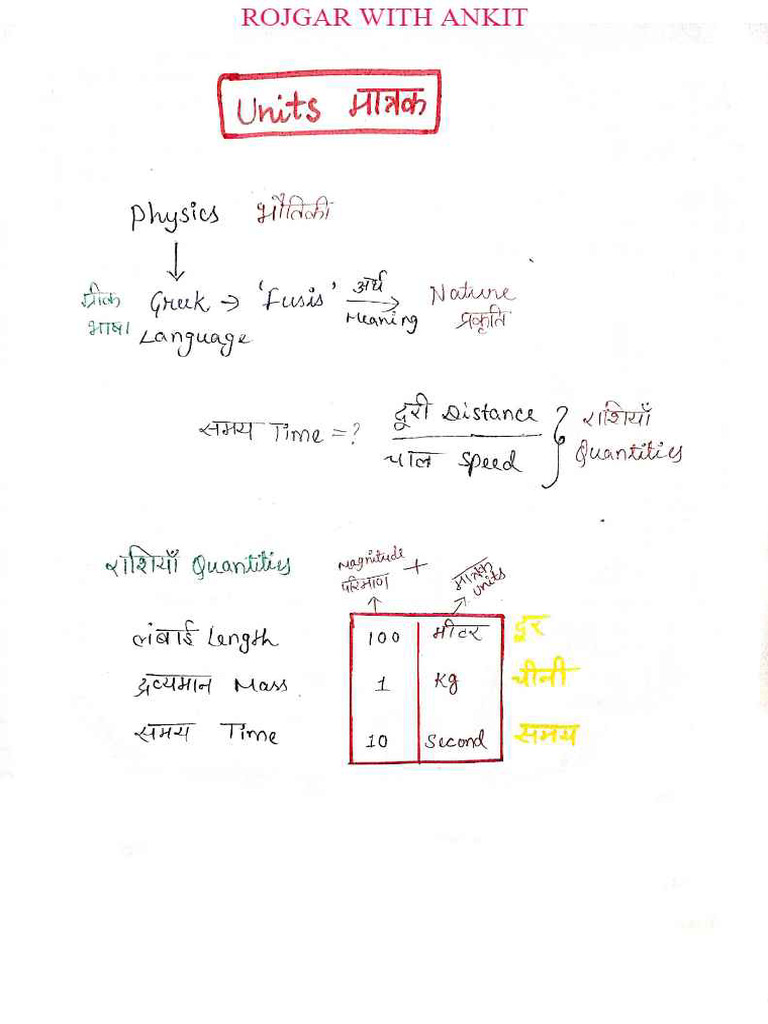 ROJGAR WITH ANKIT
Units मात्रक
Physics भौतिकी
ग्रीक भाषा Greek Language → 'Fusis' अर्थ Meaning → Nature प्रकृति
समय Time = ? दूरी Distance / चाल Speed } राशियाँ Quantities
राशियाँ Quantities Magnitude परिमाण + मात्रक units
लंबाई Length 100 मीटर दूर
द्रव्यमान Mass 1 Kg चीनी
समय Time 10 Second समय